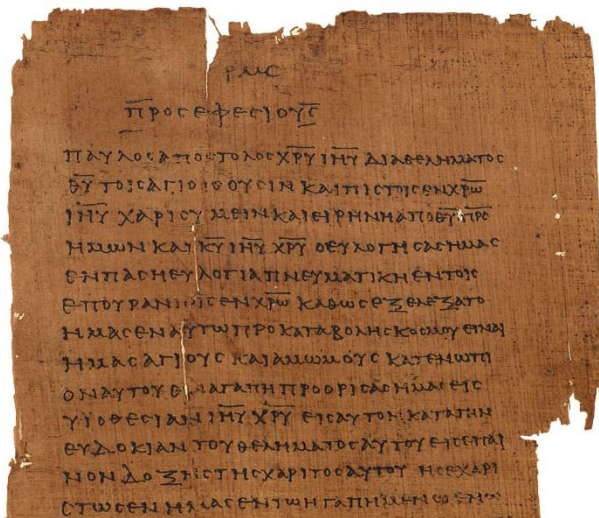 ΡΜϹ
ΠΡΟϹΕΦΕϹΙΟΥϹ
ΠΑΥΛΟϹΑΠΟϹΤΟΛΟϹΧ̅Ρ̅Υ̅ Ι̅Η̅Υ̅ ΔΙΑΘΕΛΗΜΑΤΟϹ
Θ̅Υ̅ ΤΟΙϹΑΓΙΟΙϹΟΥϹΙΝ ΚΑΙΠΙϹΤΟΙϹΕΝΧ̅Ρ̅Ω̅
Ι̅Η̅Υ̅ ΧΑΡΙϹΥΜΕΙΝΚΑΙΕΙΡΗΝΗΑΠΟΘ̅Υ̅Π̅Ρ̅Ϲ̅
ΗΜΩΝ ΚΑΙ Κ̅Υ̅ Ι̅Η̅Υ̅ Χ̅Ρ̅Υ̅ ΟΕΥΛΟΓΗϹΑϹΗΜΑϹ
ΕΝΠΑϹΗΕΥΛΟΓΙΑΠΝΕΥΜΑΤΙΚΗΕΝΤΟΙϹ
ΕΠΟΥΡΑΝΙΟΙϹΕΝΧ̅Ρ̅Ω̅ ΚΑΘΩϹΕΞΕΛΕΞΑΤΟ
ΗΜΑϹΕΝΑΥΤΩΠΡΟΚΑΤΑΒΟΛΗϹΚΟϹΜΟΥΕΙΝΑΙ
ΗΜΑϹΑΓΙΟΥϹ ΚΑΙΑΜΩΜΟΥϹ ΚΑΤΕΝΩΠΙ
ΟΝΑΥΤΟΥΕΝΑΓΑΠΗΠΡΟΟΡΙϹΑϹΗΜΑϹΕΙϹ
ΥΙΟΘΕϹΙΑΝ Ι̅Η̅Υ̅ Χ̅Ρ̅Υ̅ ΕΙϹΑΥΤΟΝΚΑΤΑΤΗΝ
ΕΥΔΟΚΙΑΝ ΤΟΥΘΕΛΗΜΑΤΟϹΑΥΤΟΥΕΙϹΕΠΑΙ
ΝΟΝ ΔΟΞΗϹΤΗϹΧΑΡΙΤΟϹΑΥΤΟΥ ΗϹΕΧΑΡΙ
ϹΤΩϹΕΝ ΗΜΑϹΕΝΤΩΗΓΑΠΗΜΕΝΩΕΝ